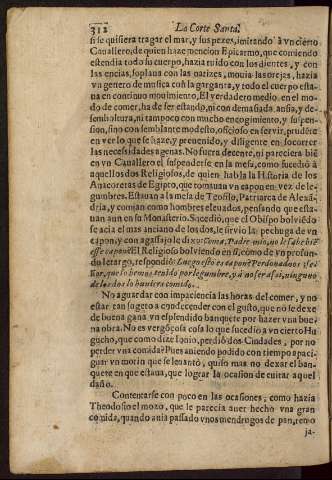 312 La Corte Santa.
si se quisiera tragar el mar, y sus pezes, imitando à vn cierto
Cauallero, de quien haze mencion Epicarmo, que comiendo
estendia todo su cuerpo, hazia ruido con los dientes, y con
las encias, soplaua con las narizes, mouia las orejas, hazia
vn genero de musica con la garganta, y todo el cuerpo esta-
ua en continuo mouimiento. El verdadero medio, en el mo-
do de comer, ha de ser estando, ni con demasiada ansia, y de-
semboltura, ni tampoco con mucho encogimiento, y suspen-
sion, sino con semblante modesto, oficioso en seruir, prudẽte
en ver lo que se haze, y preuenido, y diligente en socorrer
las necessidades agenas. No fuera decente, ni pareciera biẽ
en vn Cauallero el suspenderse en la mesa, como sucediò à
aquellos dos Religiosos, de quien habla la Historia de los
Anacoretas de Egipto, que tomauan vn capon en vez de le-
gumbres. Estauan à la mesa de Teofilo, Patriarca de Alexã-
dria, y comian como hombres eleuados, pensando que esta-
uan aun en su Monasterio. Sucediò, que el Obispo boluiẽdo
se àcia el mas anciano de los dos, le siruiò la pechuga de vn
capon, y con agassajo le dixo: Coma, Padre mio, no le sabe biẽ
esse capon? El Religioso boluiendo en si, como de vn profun-
do letargo, respondiò: Luego esto es capon? Perdonadnos se-
ñor, que lo hemos tenido por legumbre, y à no ser assi, ninguno
de los dos lo huuiera comido.
No aguardar con impaciencia las horas del comer, y no
estar tan sugeto à condecender con el gusto, que no se dexe
de buena gana vn esplendido banquete por hazer vna bue-
na obra. No es vergõçosa cosa lo que sucediò a vn cierto Hu
gucho, que como dize Iouio, perdiò dos Ciudades, por no
perder vna comida? Pues auiendo podido con tiempo apaci-
guar vn motin que se leuantò, quiso mas no dexar el ban-
quete en que estaua, que lograr la ocasion de euitar aquel
daño.
Contentarse con poco en las ocasiones, como hazia
Theodosio el moço, que le parecia auer hecho vna gran
comida, quando auia passado vnos mendrugos de pan, remo
ja-